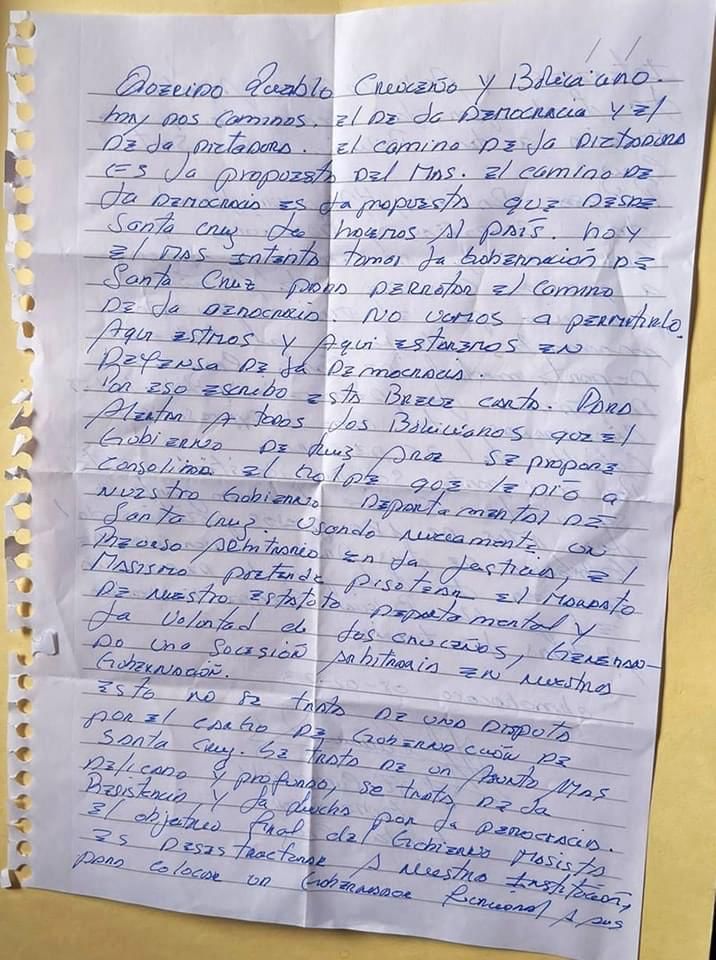 Querido Pueblo Cruceño y Boliviano.
Hay dos caminos. El de la Democracia y el
de la Dictadura. El camino de la Dictadura
es la propuesta del Mas. El camino de
la Democracia es la propuesta que desde
Santa Cruz le hacemos al país. Hoy
el Mas intenta tomar la Gobernación de
Santa Cruz para derrotar el camino
de la democracia. No vamos a permitirlo.
Aqui estamos y Aqui estaremos en
Defensa de la Democracia.
Por eso escribo esta Breve carta. Para
Alertar A todos los Bolivianos que el
Gobierno de Luis Arce se propone
Consolidar el Golpe que le dió a
nuestro Gobierno Departamental de
Santa Cruz. Usando nuevamente un
recurso Arbitrario en la Justicia, el
Masismo pretende pisotear el Mandato
de nuestro Estatuto Departamental y
la Voluntad de los cruceños, Generan-
do una Sucesión Arbitraria en nuestra
Gobernación.
Esto no se trata de una disputa
por el cargo de Gobernación de
Santa Cruz. Se trata de un Asunto Mas
Delicado y profundo, se trata de la
Resistencia y la lucha por la Democracia.
El objetivo final del Gobierno Masista
es Desestructurar A nuestra Institución,
para colocar un Gobernador funcional A sus